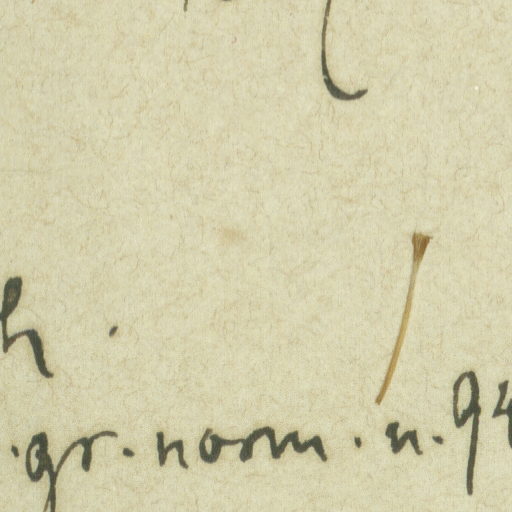 h.
.gr. norm. n. 94